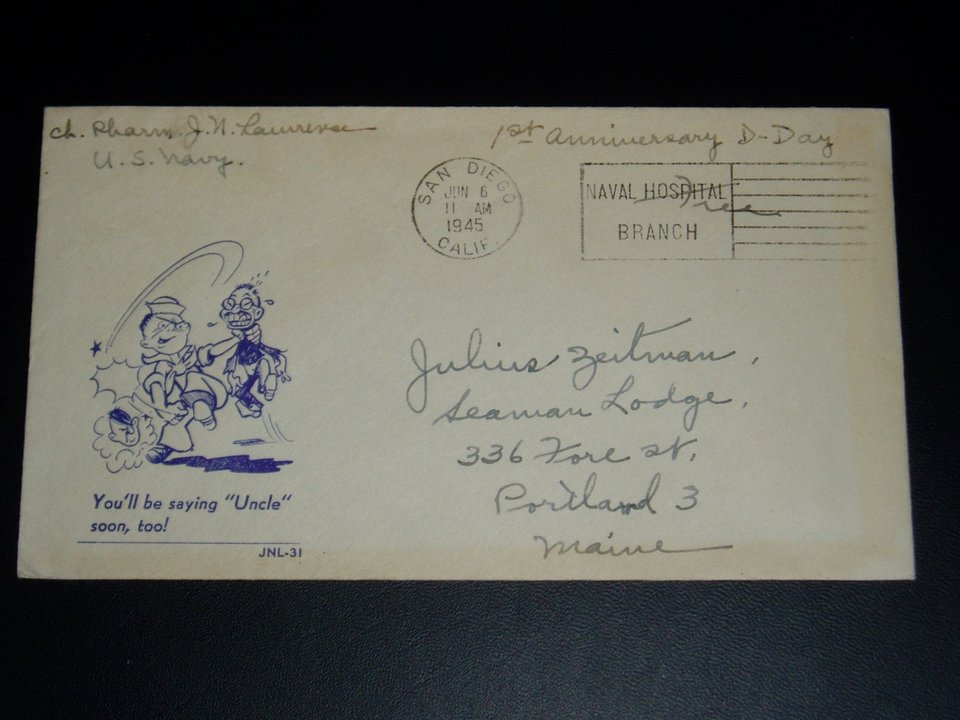 Ch. Pharm. J. N. Lawrence
U. S. Navy.
1st Anniversary D-Day
SAN DIEGO
JUN 6
11 AM
1945
CALIF.
NAVAL HOSPITAL
BRANCH
Free
Julius Zeitman,
Seaman Lodge,
336 Fore St.
Portland 3
Maine
You'll be saying "Uncle"
soon, too!
JNL-31